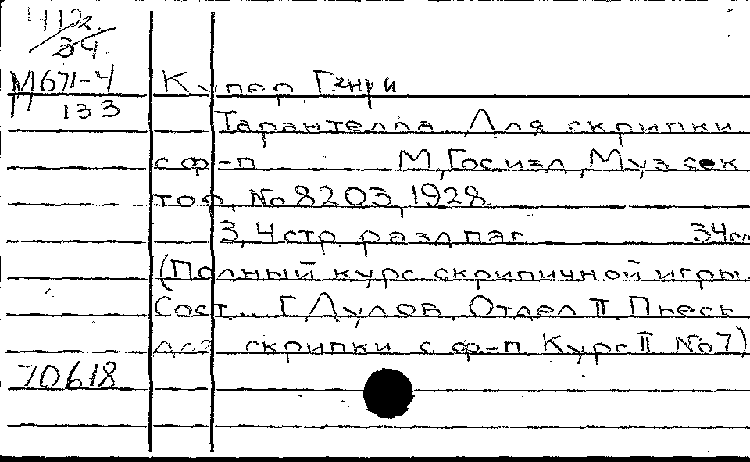 412
34
М671-4 Купер Генри
133
Тарантелла. Для скрипки
с ф-п М, Госизд, Муз сек
тор, №8203, 1928
3, 4 стр. разд паг 34см
(Полный курс скрипичной игры.
Сост... Г, Дулов, Отдел II Пьесы
для скрипки с ф-п Курс II №7)
70618